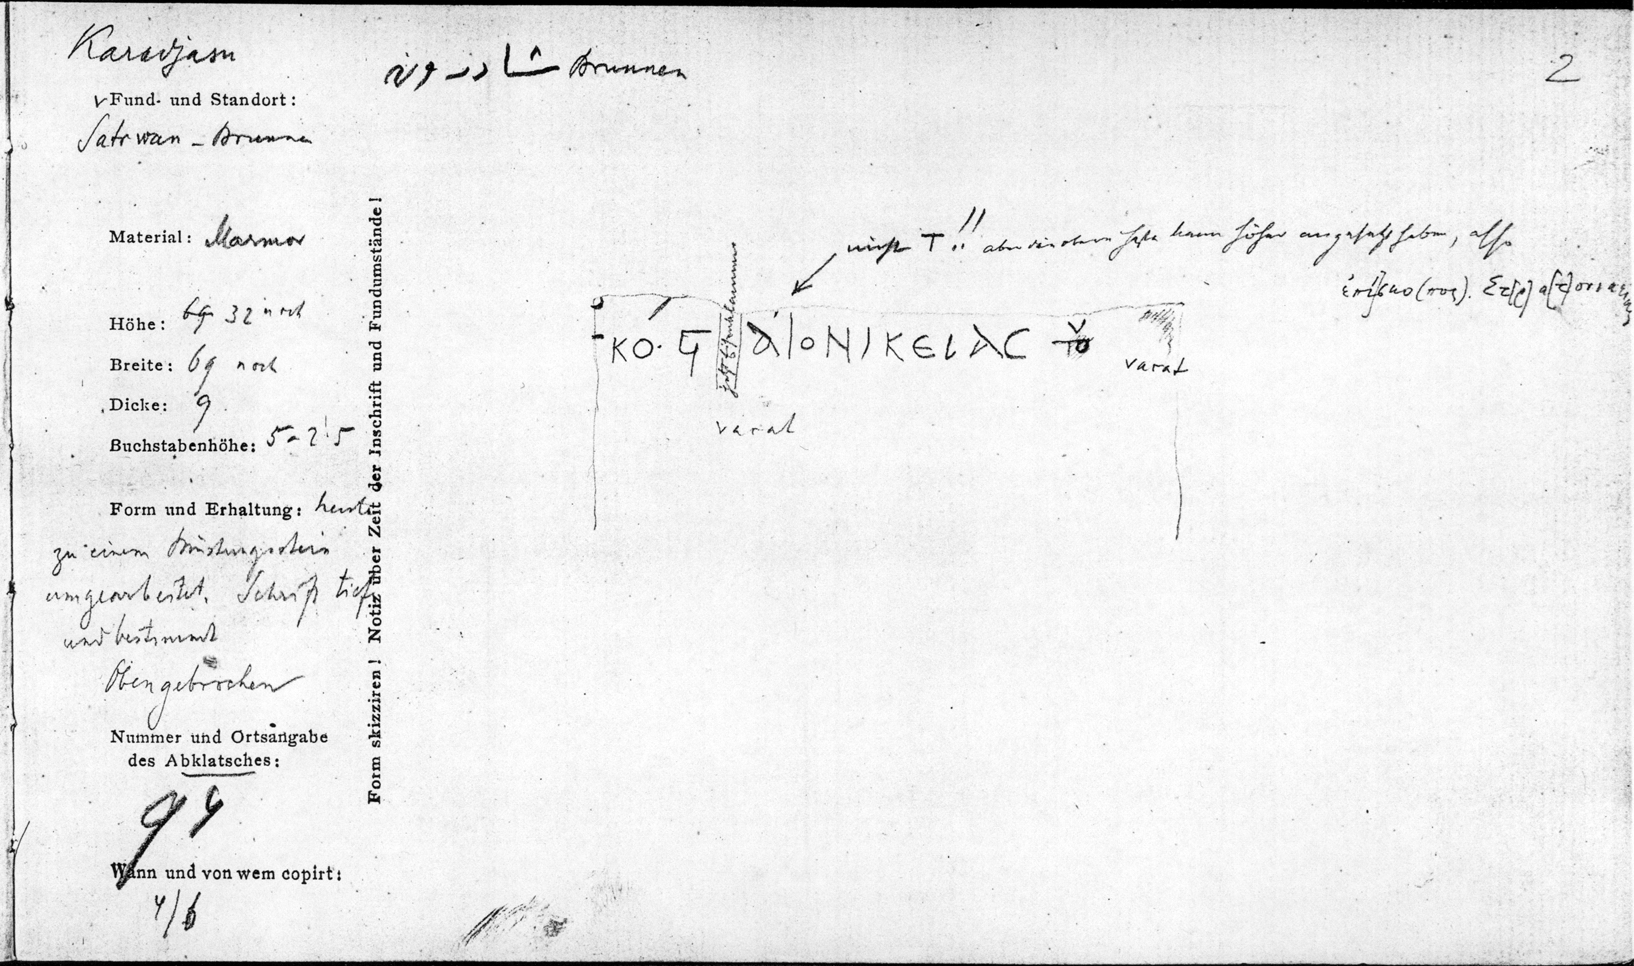 Karadjasu
شادروان Brunnen
2
Fund- und Standort:
Satrwan - Brunnen
Material: Marmor
Höhe: 32 noch
Breite: 69 noch
Dicke: 9
Buchstabenhöhe: 5-2'5
Form und Erhaltung: heute
zu einem Brüstungsstein
umgearbeitet. Schrift tief
und bestimmt
Oben gebrochen
Nummer und Ortsangabe
des Abklatsches:
94
Wann und von wem copirt:
4/6
Form skizziren! Notiz über Zeit der Inschrift und Fundumstände!
nicht T!! aber kann höher angesetzt haben, also
ΚΟ· ΙΟΝΙΚΕΙΑС
vacat
vacat